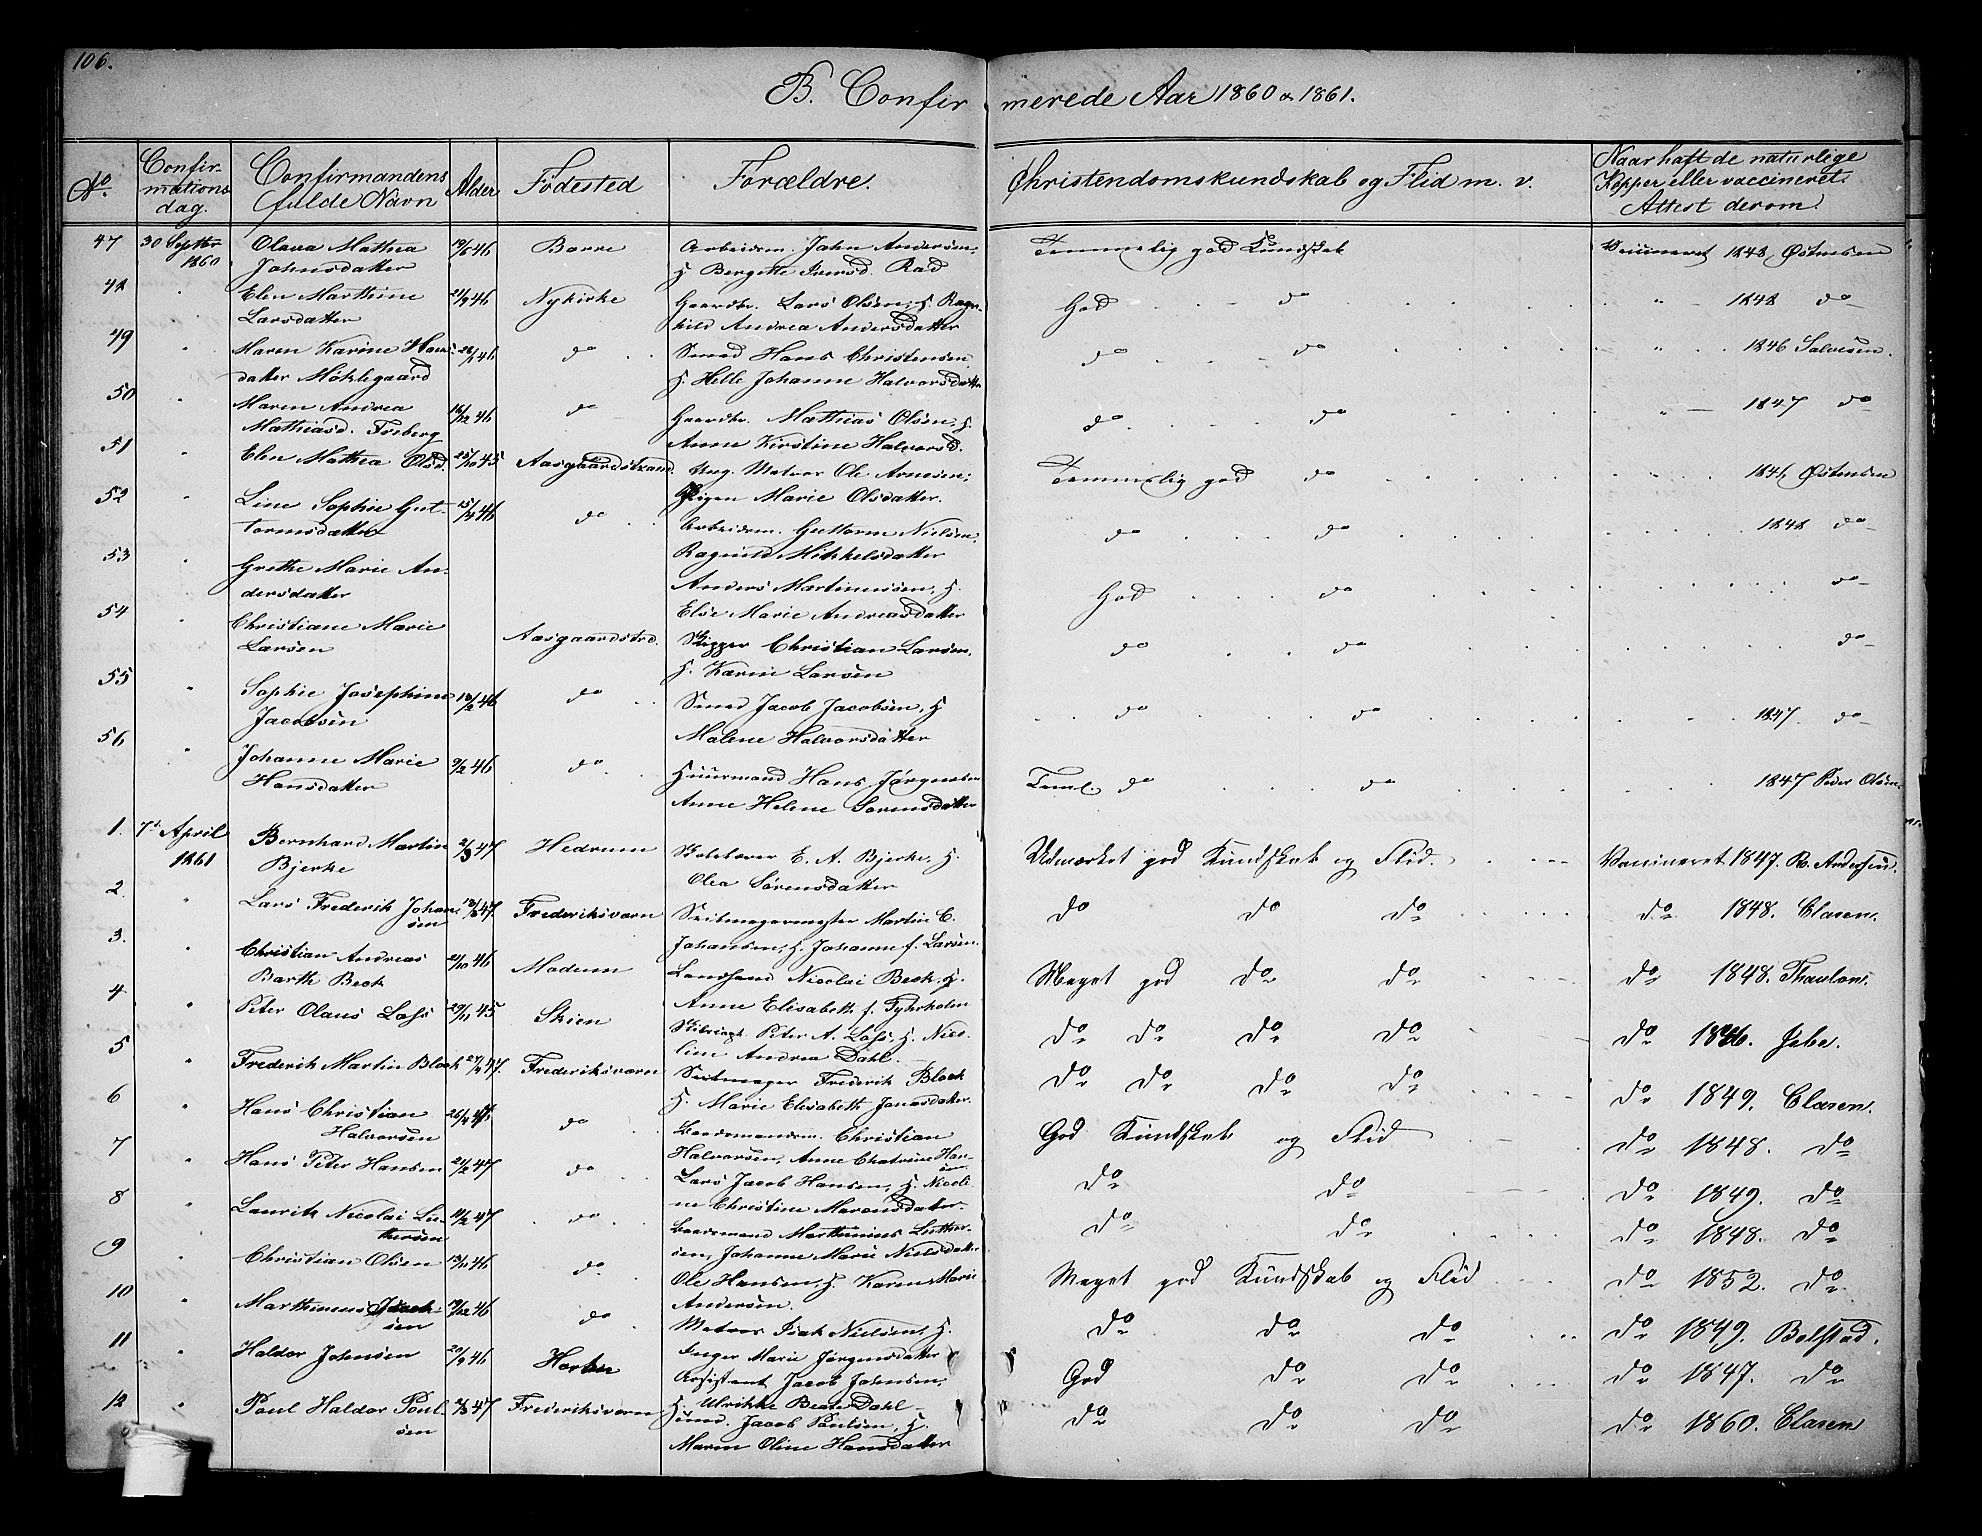 106.
B. Confirmerede Aar 1860 & 1861.
No. Confirmations dag. Confirmandens fulde Navn Alder Fødested Forældre. Christendomskundskab og Flid m. v. Naar haft de naturlige Kopper eller vaccineret. Attest derom.
47 30 Septbr 1860 Olava Mathea 19/5 46 Borre Arbeidsm. John Andersen, Temmelig god Kundskab Vaccineret 1848, Østensen
Johnsdatter H Bergitte Iversd. Rød
48 " Elen Marthine 21/9 46 Nykirke Gaardbr. Lars Olsen, H. Ragn- God do " 1848 do
Larsdatter hild Andrea Andersdatter
49 " Maren Karine Hans- 26/1 46 do Smed Hans Christensen do do " 1846 Salvesen.
datter Møklegaard H. Helle Johanne Halvorsdatter
50 " Maren Andrea 16/12 46 do Gaardbr. Mathias Olsen, H. do do " 1847 do
Mathiasd. Freberg Anne Kirstine Halvorsd.
51 Elen Mathea Olsd. 25/10 45 Aasgaardstrand. Ung. Matros Ole Arnesen; Temmelig god do 1846 Østensen
52 " Line Sophie Gut- 15/4 46 do Pigen Marie Olsdatter.
tormsdatter Arbeidsm. Guttorm Nielsen, do do 1848 do
53 " Grethe Marie An- Ragnild Mikkelsdatter
dersdatter Anders Martinussen, H. God do do
54 " Christiane Marie Else Marie Andreasdatter
Larsen Aasgaardstrd. Skipper Christian Larsen, do do do
H. Karen Larsen
55 " Sophie Josephine 18/2 46 do Smed Jacob Jacobsen, H do do 1847. do
Jacobsen Malene Halvorsdatter
56 " Johanne Marie 9/2 46 do Huusmand Hans Jørgensen Teml. do do 1847 Peder Olsen
Hansdatter Anne Helene Sorensdatter
1. 7de April 1861 Bernhard Martin 2/3 47 Hedrum Skolelærer E. A. Bjerke, H. Udmærket god Kundskab og Flid. Vaccineret 1847. R. Andersen.
Bjerke Olea Sørensdatter
2. " Lars Frederik Johan- 18/3 47. Frederiksværn Seilmagermester Martin C. do do do do 1848. Clasen.
sen Johansen, H. Johanne f. Larsen.
3. " Christian Andreas 21/10 46 Modum Landhand. Nicolai Beck. H. Meget god do do do 1848. Thaulow.
Barth Beck Anne Elisabeth f. Fyhrholm
4 " Peter Olaus Lass 29/11 45 Skien Peter A. Lass, H. Nico- do do do do do 1846.
line Andrea Dahl.
5 " Frederik Martin Block 27/2 47. Frederiksværn Seilmager Frederik Block do do do do do 1849. Clasen.
H. Marie Elisabeth Jonasdatter.
6 " Hans Christian 26/4 47 do Baadsmandsm. Christian God Kundskab og Flid do 1848. do
Halvorsen Halvorsen, Anne Chatrine Hansen
7 " Hans Peter Hansen 21/2 47 do Lars Jacob Hansen, H. Nicoli- do do do 1849. do
ne Christine Marensdatter.
8 " Laurits Nicolai Lut- 14/2 47 do Baadsmand Marthinius Lutter- do do do 1848. do
tersen sen, Johanne Marie Nielsdatter
9 " Christian Olsen 13/11 46 do. Ole Hansen, H. Karen Marie Meget god Kundskab og Flid do 1852. do
Andersen.
10 " Marthinus Isack- 19/12 46 do Matros Isak Nielsen, H. do do do do 1849. Bolstad.
sen Inger Marie Jørgensdatter
11 " Haldor Johnsen 20/9 46 Horten Assistent Jacob Johnsen, God do do do 1847. do
H. Ulrikke Beate Dahl
12 " Poul Haldor Poul- 2/3 47 Frederiksværn Smed. Jacob Poulsen, H. do do do do 1860. Clasen
sen Maren Oline Hansdatter